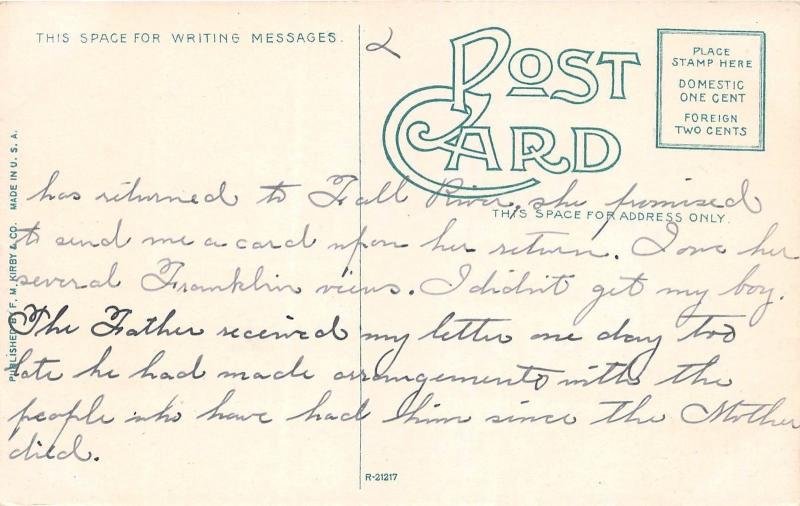 THIS SPACE FOR WRITING MESSAGES.
2
POST
CARD
PLACE
STAMP HERE
DOMESTIC
ONE CENT
FOREIGN
TWO CENTS
THIS SPACE FOR ADDRESS ONLY.
PUBLISHED BY F. M. KIRBY & CO. MADE IN U. S. A.
has returned to Fall River, she promised
to send me a card upon her return. I owe her
several Franklin views. I didn't get my boy.
The Father received my letter one day too
late he had made arrangements with the
people who have had him since the Mother
died.
R-21217